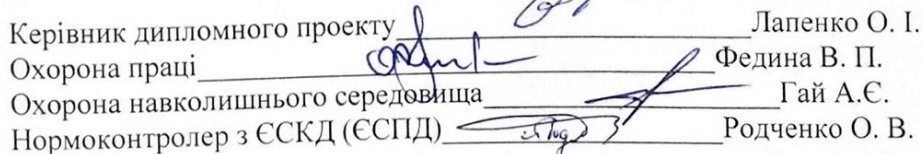 Керівник дипломного проекту Лапенко О. І.
Охорона праці Федина В. П.
Охорона навколишнього середовища Гай А.Є.
Нормоконтролер з ЄСКД (ЄСПД) Родченко О. В.